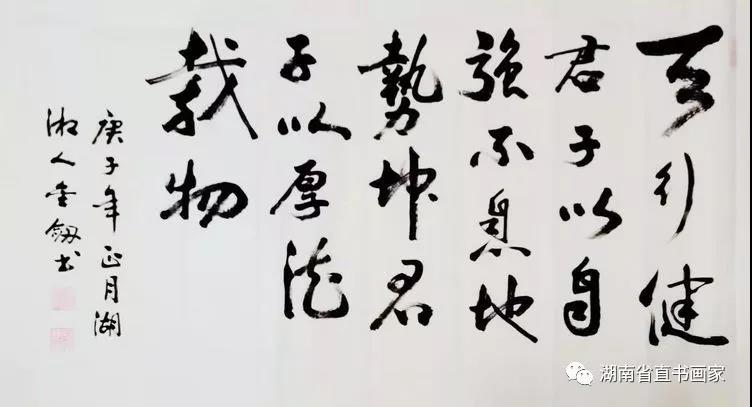 天行健
君子以自
強不息地
勢坤君
子以厚德
載物
庚子年正月湖
湘人金釼书
湖南省直书画家